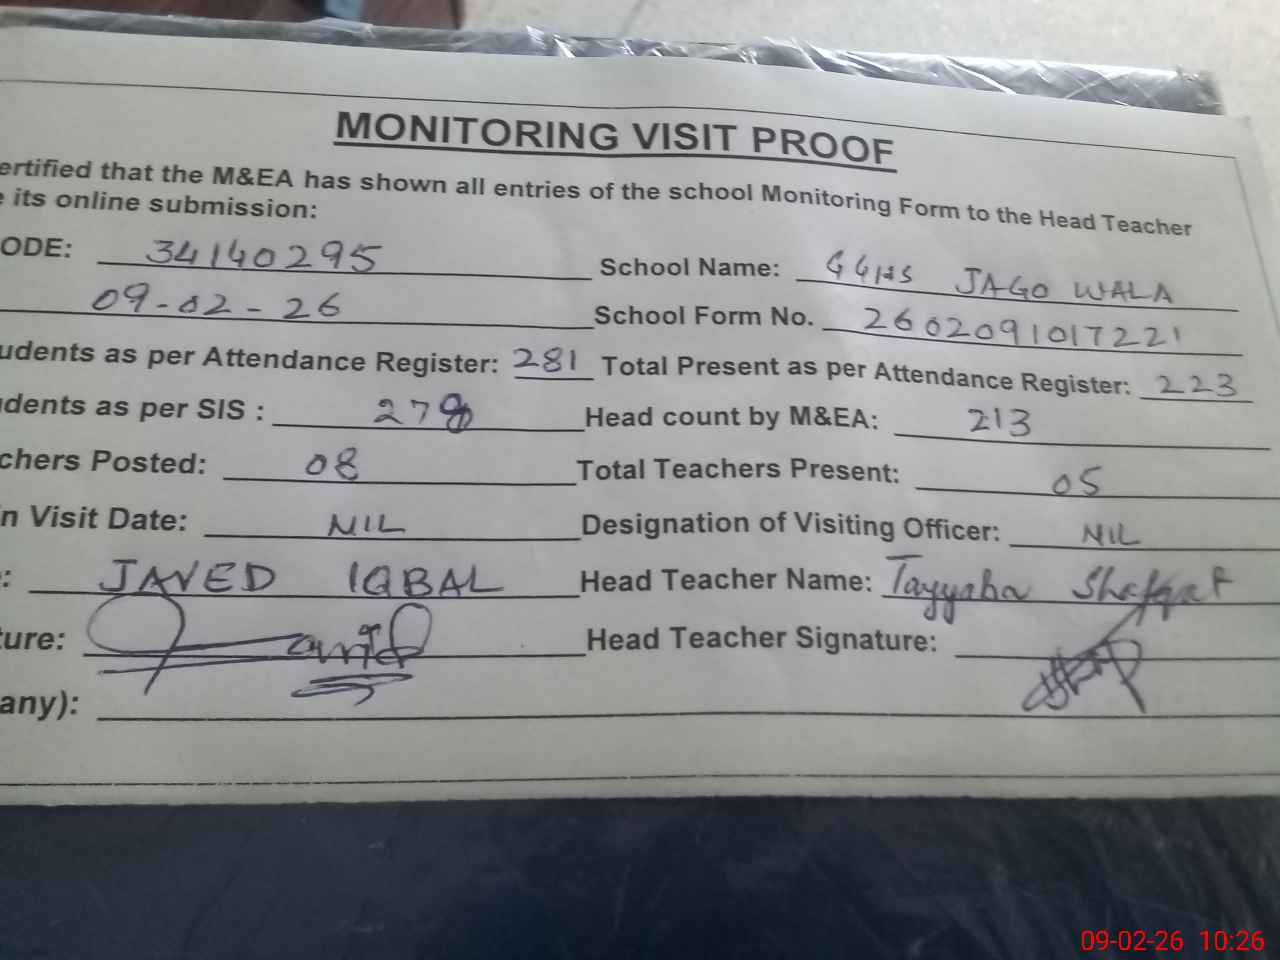 MONITORING VISIT PROOF
ertified that the M&EA has shown all entries of the school Monitoring Form to the Head Teacher
e its online submission:
ODE: 34140295 School Name: GGHS JAGO WALA
09-02-26 School Form No. 2602091017221
udents as per Attendance Register: 281 Total Present as per Attendance Register: 223
dents as per SIS : 278 Head count by M&EA: 213
chers Posted: 08 Total Teachers Present: 05
n Visit Date: NIL Designation of Visiting Officer: NIL
: JAVED IQBAL Head Teacher Name: Tayyaba Shafqat
ture: Head Teacher Signature:
any):
09-02-26 10:26